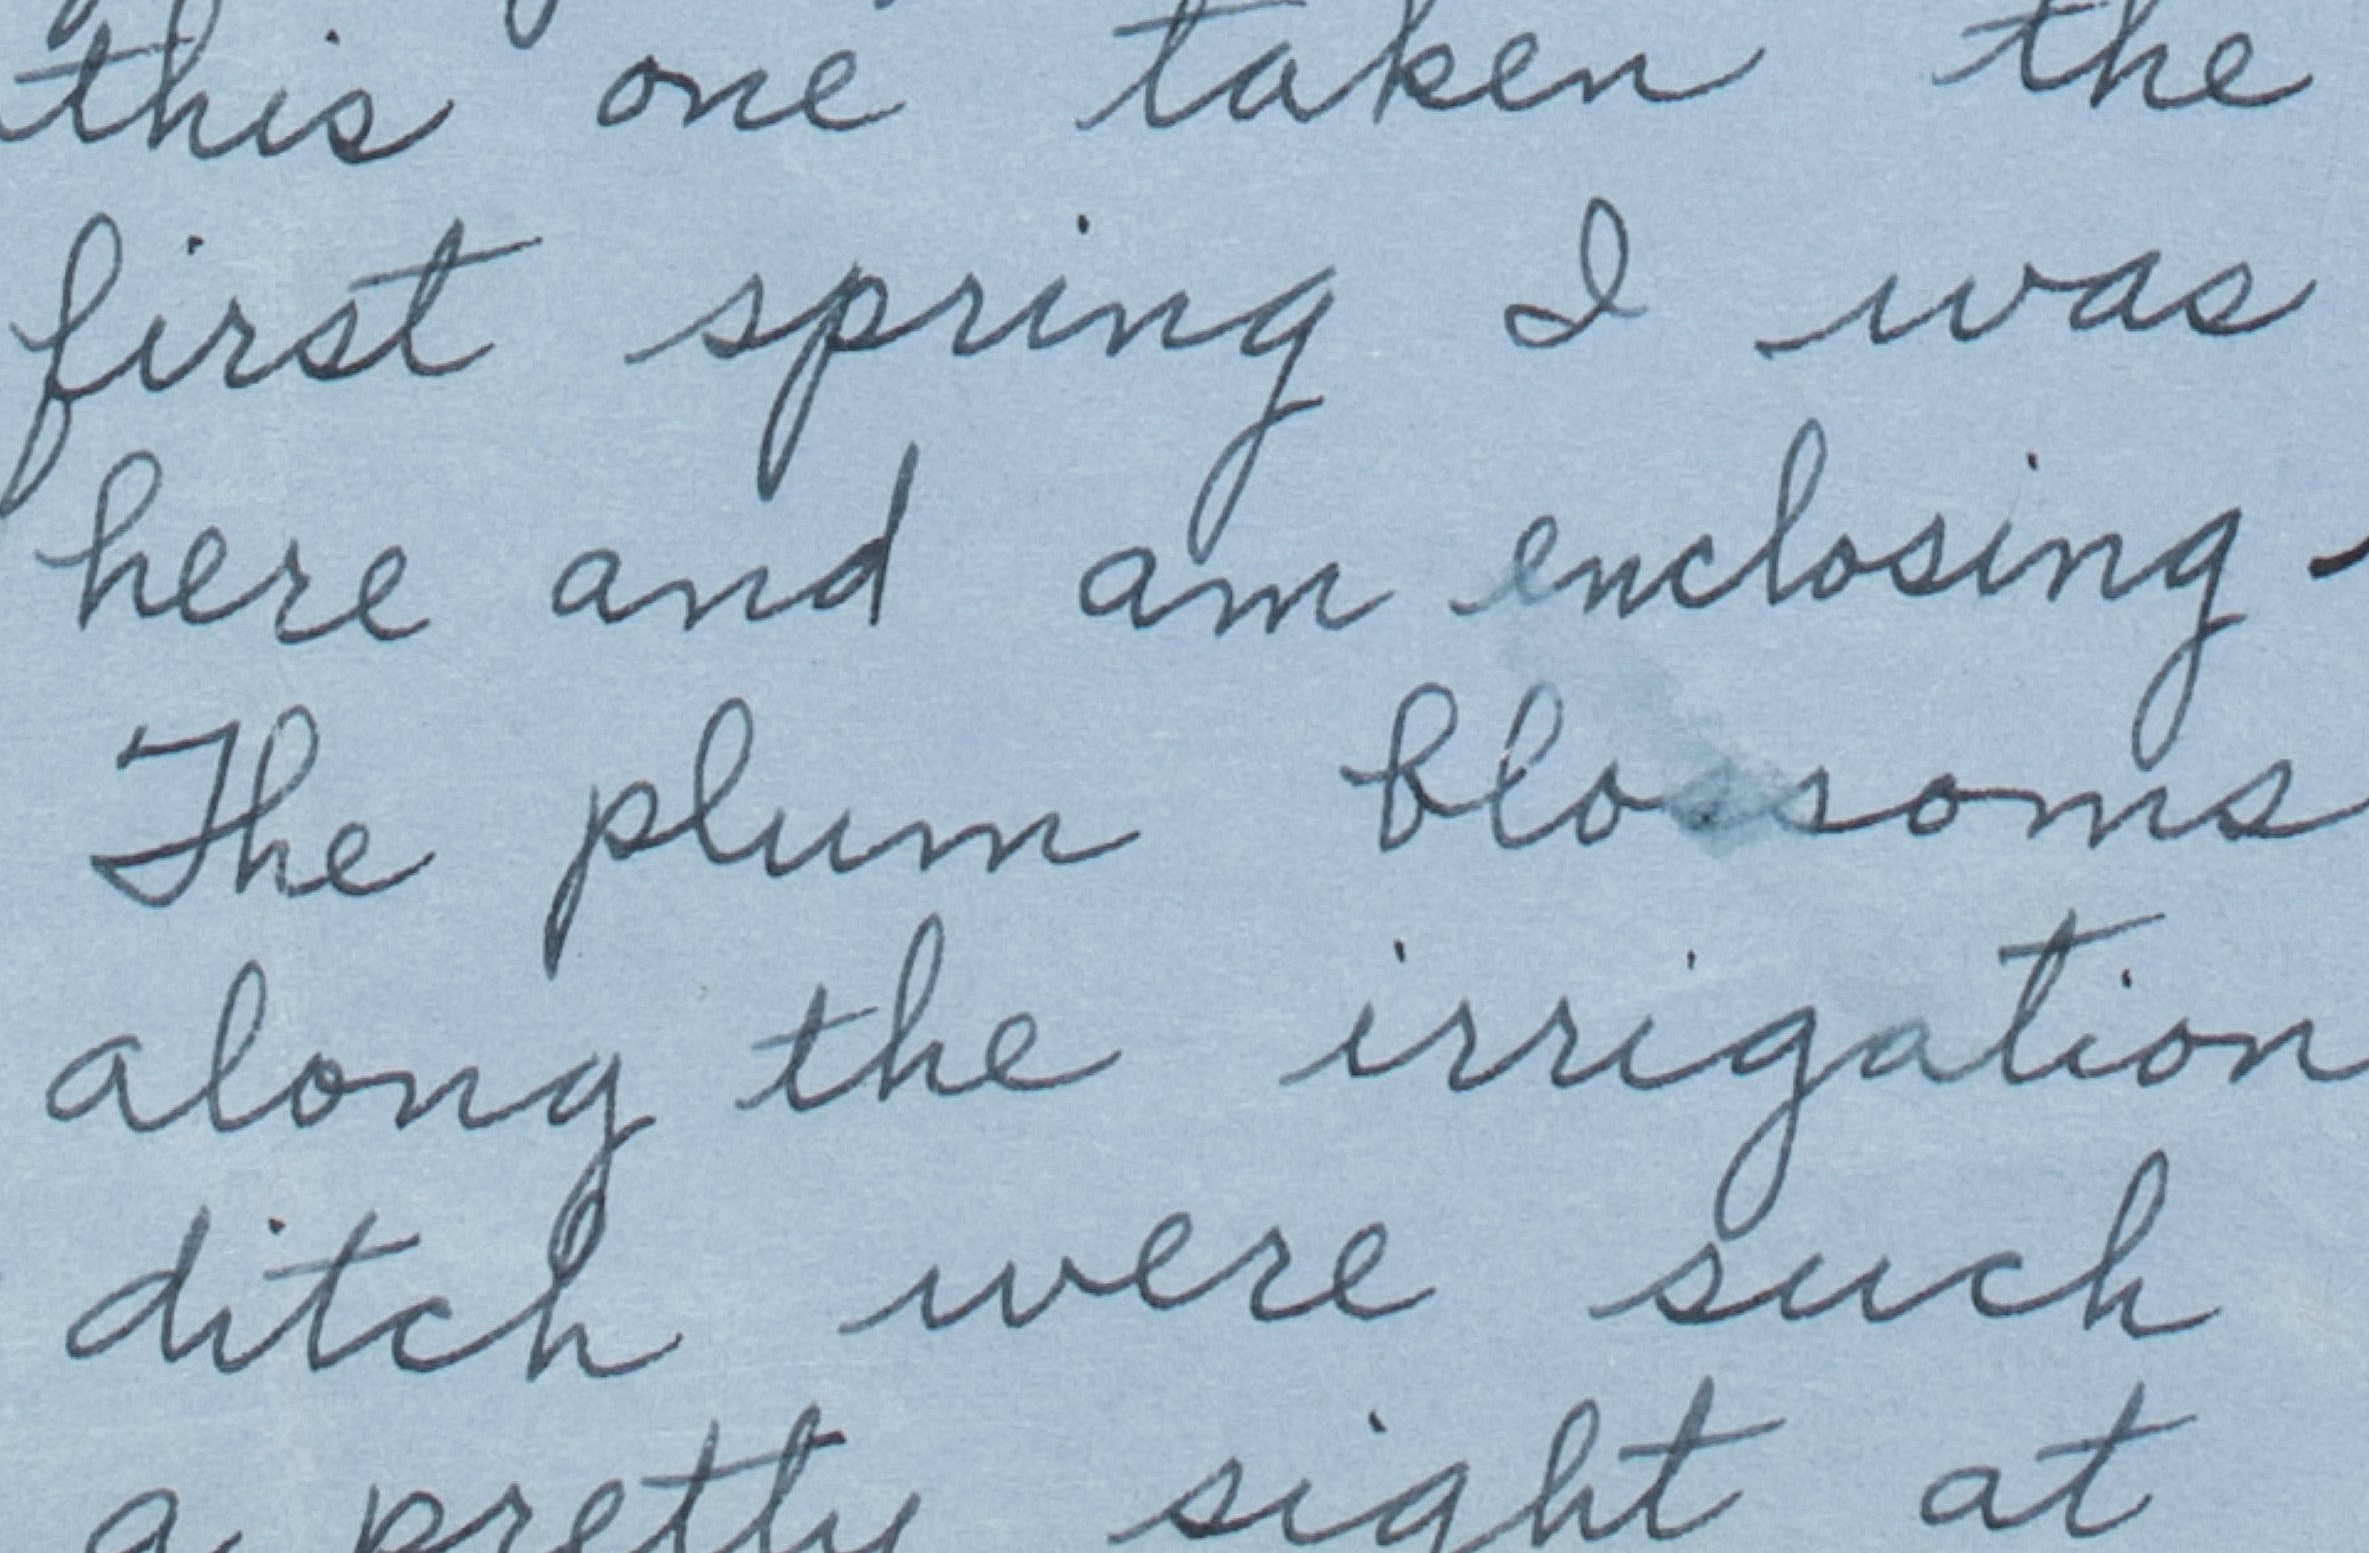 this one taken the
first spring I was
here and am enclosing
The plum blossoms
along the irrigation
ditch were such
a pretty sight at